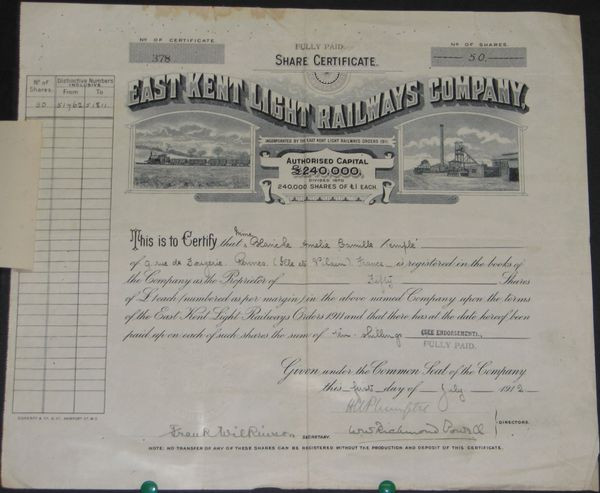 Nº OF CERTIFICATE
378
FULLY PAID.
SHARE CERTIFICATE.
Nº OF SHARES.
50.
EAST KENT LIGHT RAILWAYS COMPANY.
INCORPORATED BY THE EAST KENT LIGHT RAILWAYS ORDERS 1911.
AUTHORISED CAPITAL
£240,000.
DIVIDED INTO
240,000 SHARES OF £1 EACH.
Nº of Shares.
Distinctive Numbers INCLUSIVE
From To
50 51762 51811
This is to Certify that Mme Blanche Amelie Camille
of 9 rue de Rennes (Ille et Vilaine) France is registered in the books of
the Company as the Proprietor of Fifty Shares
of £1 each (numbered as per margin) in the above named Company upon the terms
of the East Kent Light Railways Orders 1911 and that there has at the date hereof been
paid up on each of such shares the sum of shillings (SEE ENDORSEMENT).
FULLY PAID.
Given under the Common Seal of the Company
this first day of July 1912
Frank Wilkinson SECRETARY.
DIRECTORS.
NOTE: NO TRANSFER OF ANY OF THESE SHARES CAN BE REGISTERED WITHOUT THE PRODUCTION AND DEPOSIT OF THIS CERTIFICATE.